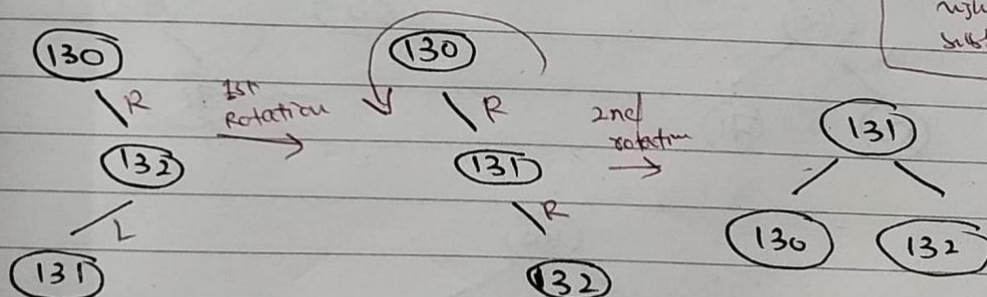 130 R 132 L 131
1st
Rotation
130 R 131 R 132
2nd
rotation
131
130 132